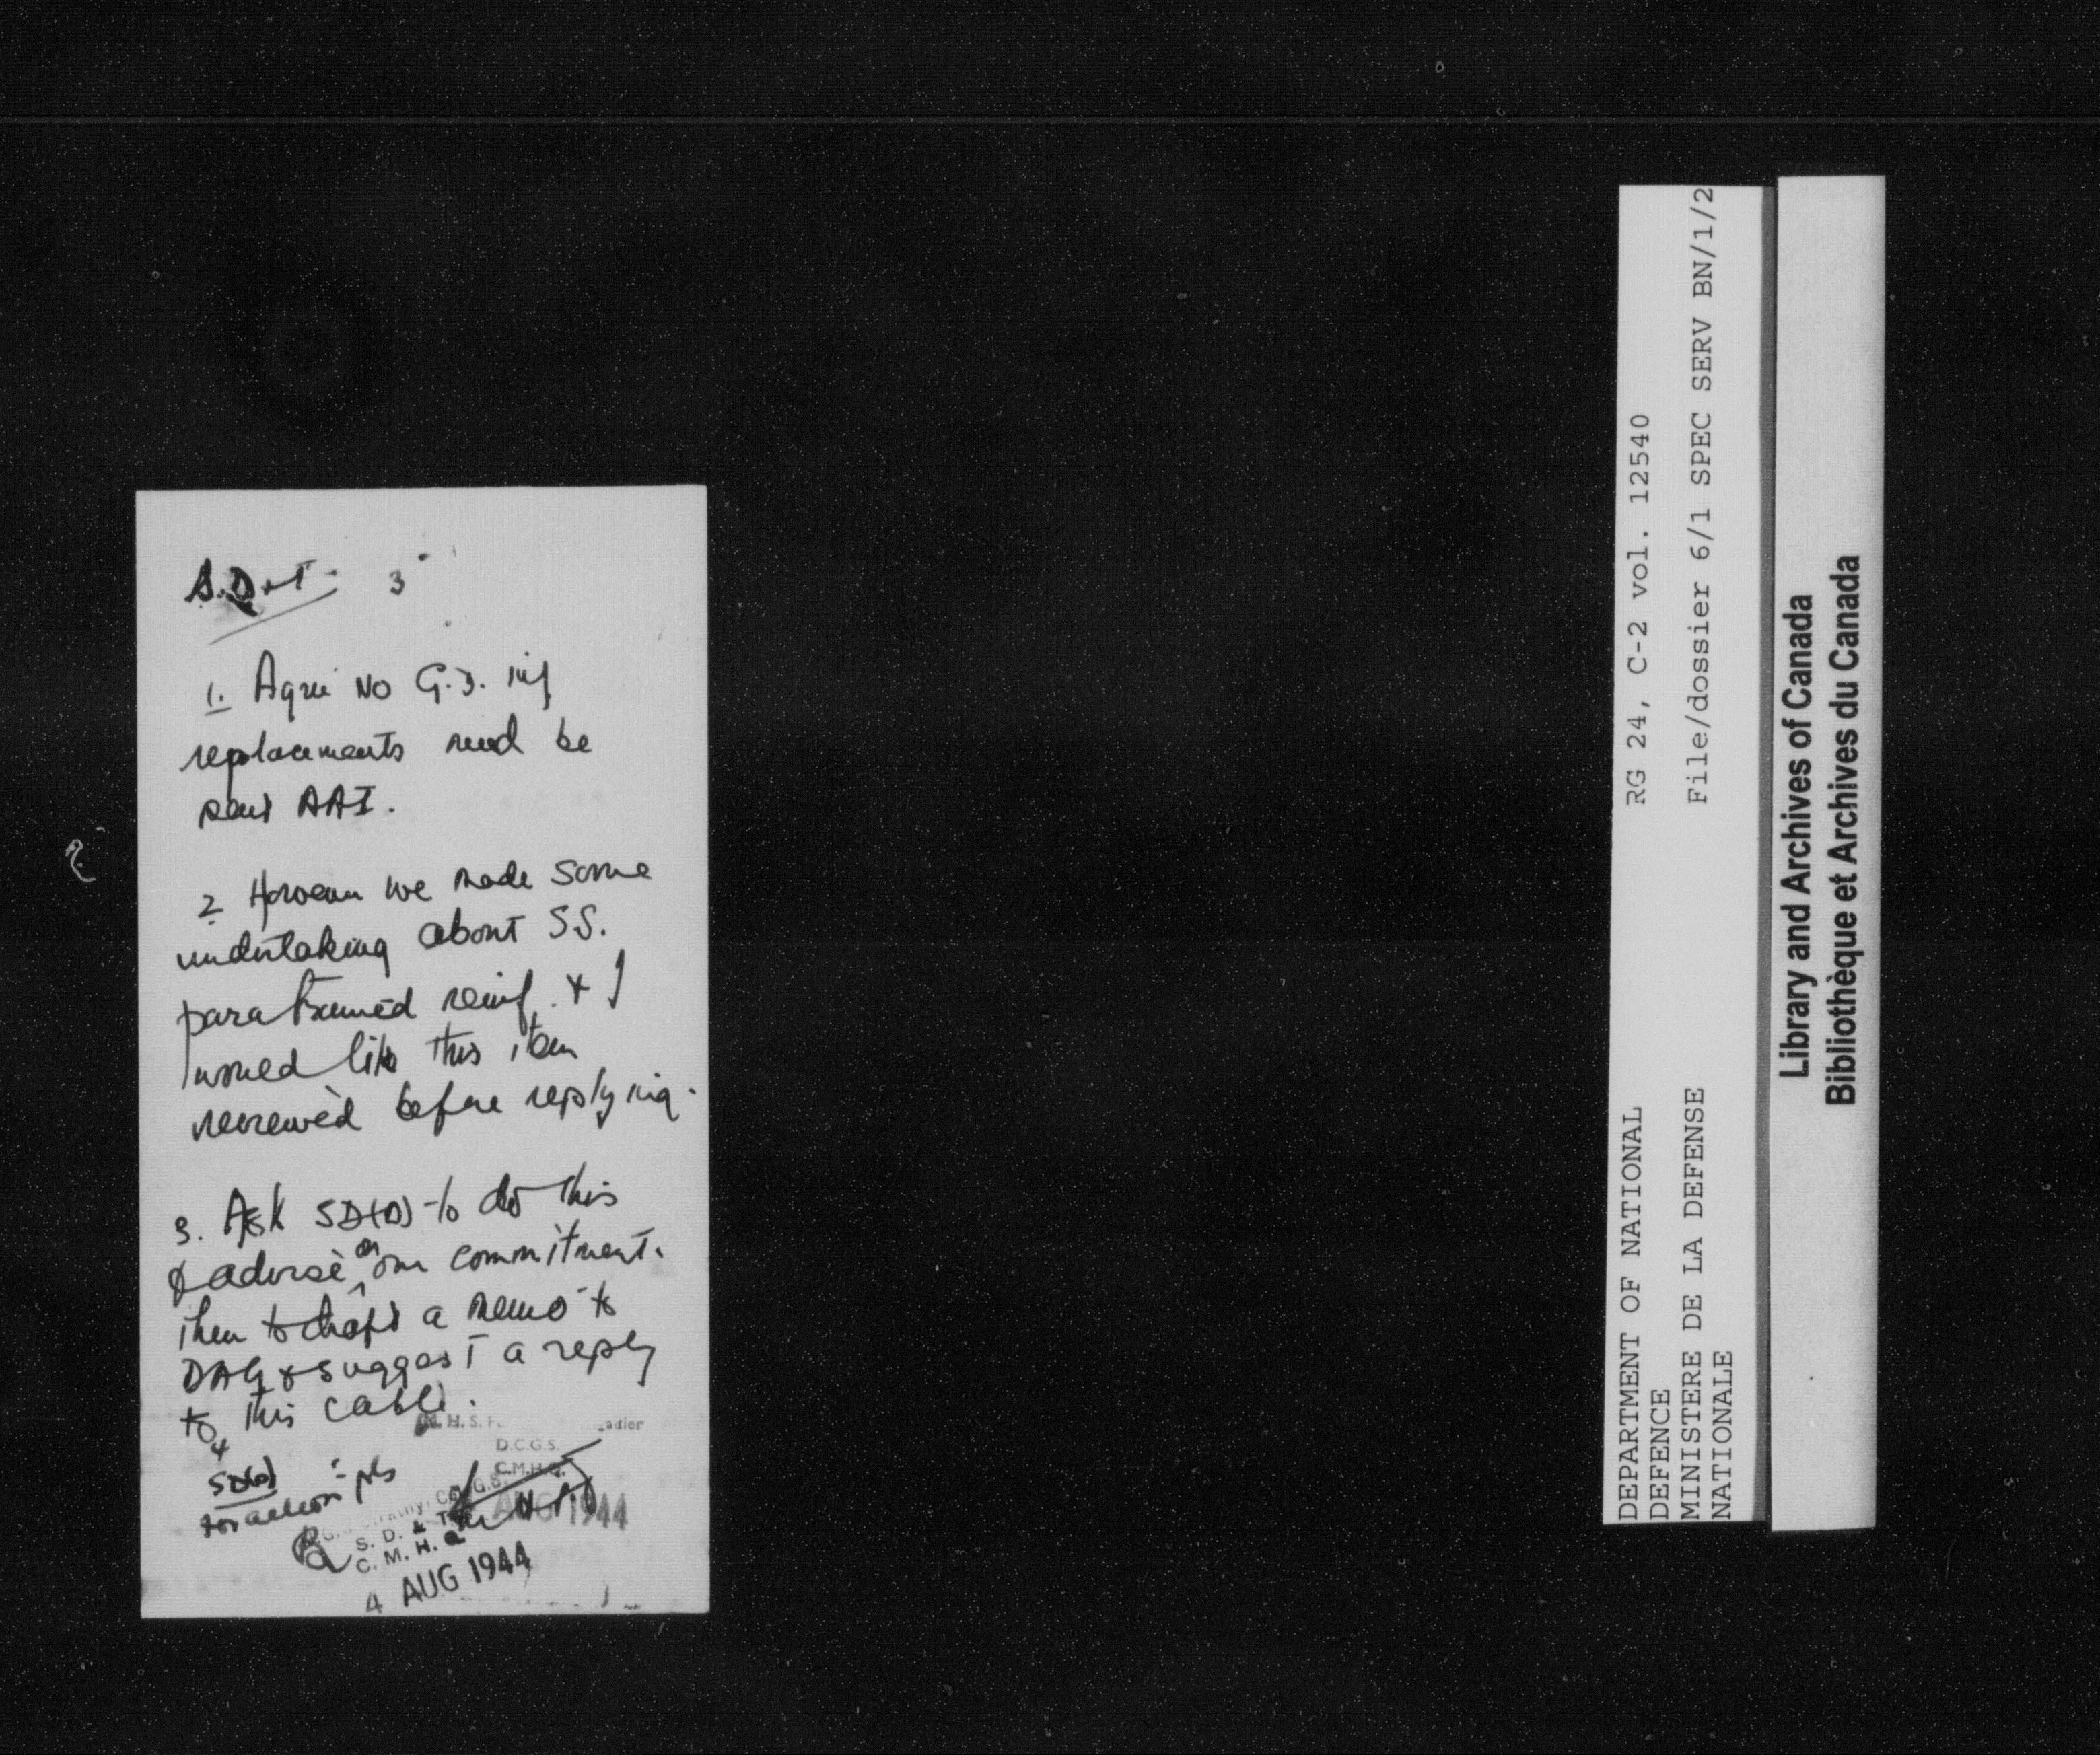 S.D.+T. 3
1. Agree No G.D. inf
replacements need be
sent AAI.
2 However we made some
undertaking about S.S.
para trained reinf. + I
would like this item
reviewed before replying.
3. Ask SD(D) to do this
& advise on our commitment.
Then to draft a memo to
DAG & suggest a reply
to this cable.
M. H. S. adier
D.C.G.S.
C.M.H.Q.
AUG 1944
4
SD(D)
for action pls
S. D. & T.
C. M. H. Q
4 AUG 1944
RG 24, C-2 vol. 12540
File/dossier 6/1 SPEC SERV BN/1/2
DEPARTMENT OF NATIONAL
DEFENCE
MINISTERE DE LA DEFENSE
NATIONALE
Library and Archives of Canada
Bibliothèque et Archives du Canada